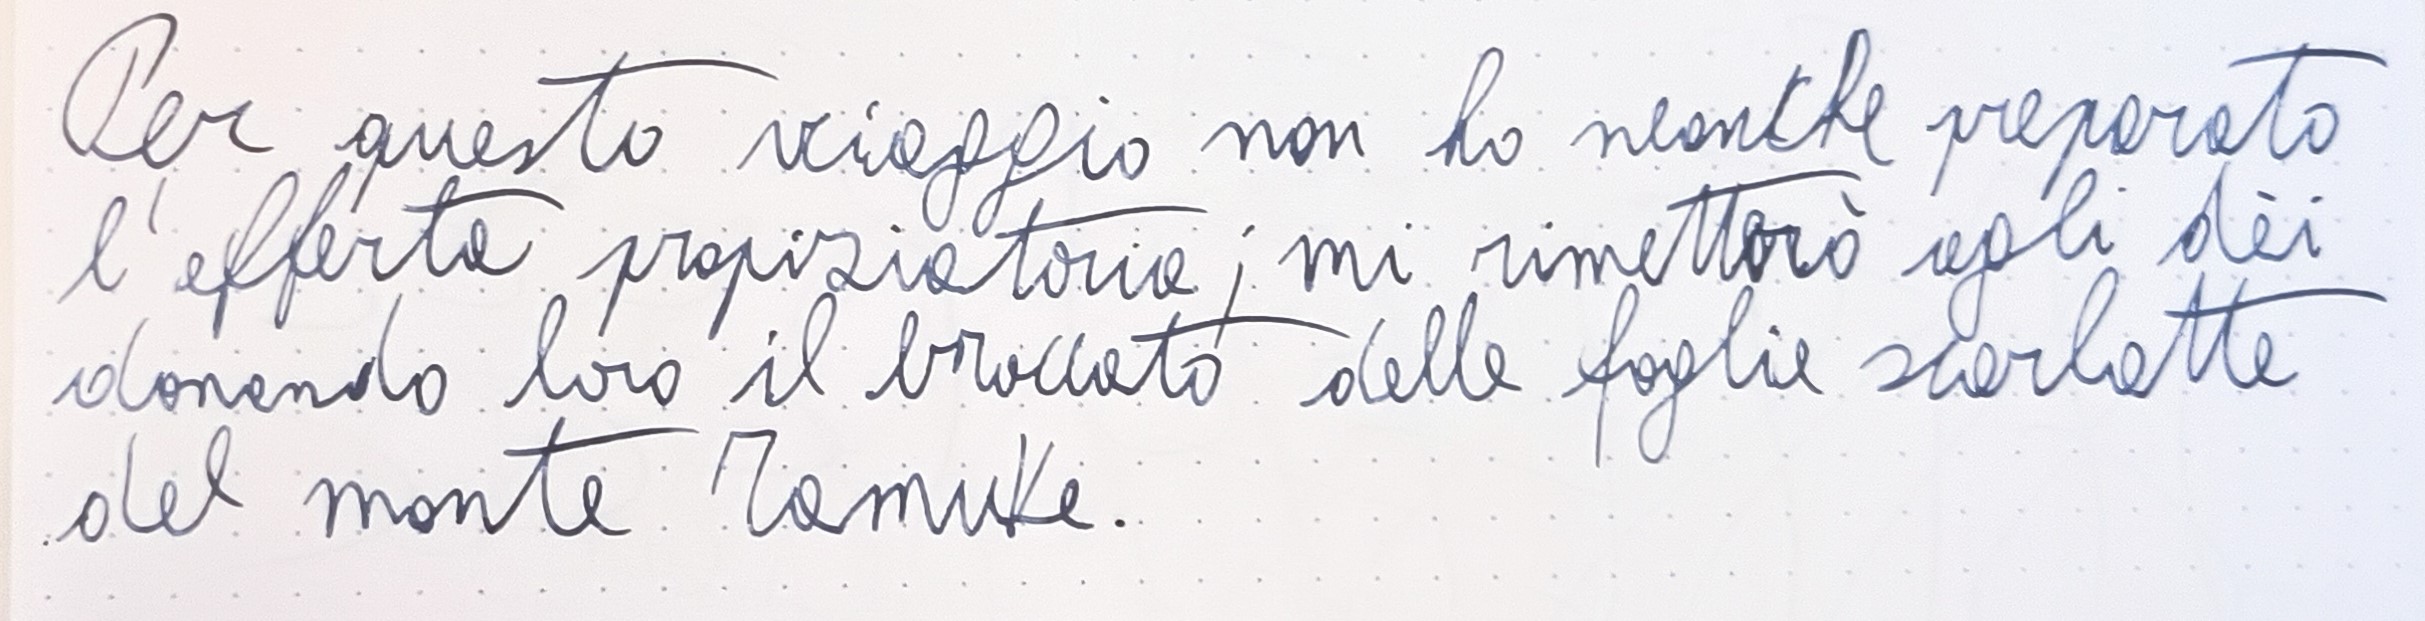 Per questo viaggio non ho neanche preparato
l'efferta propiziatoria; mi rimetterò agli dèi
donando loro il broccato delle foglie scarlatte
del monte Tamuke.